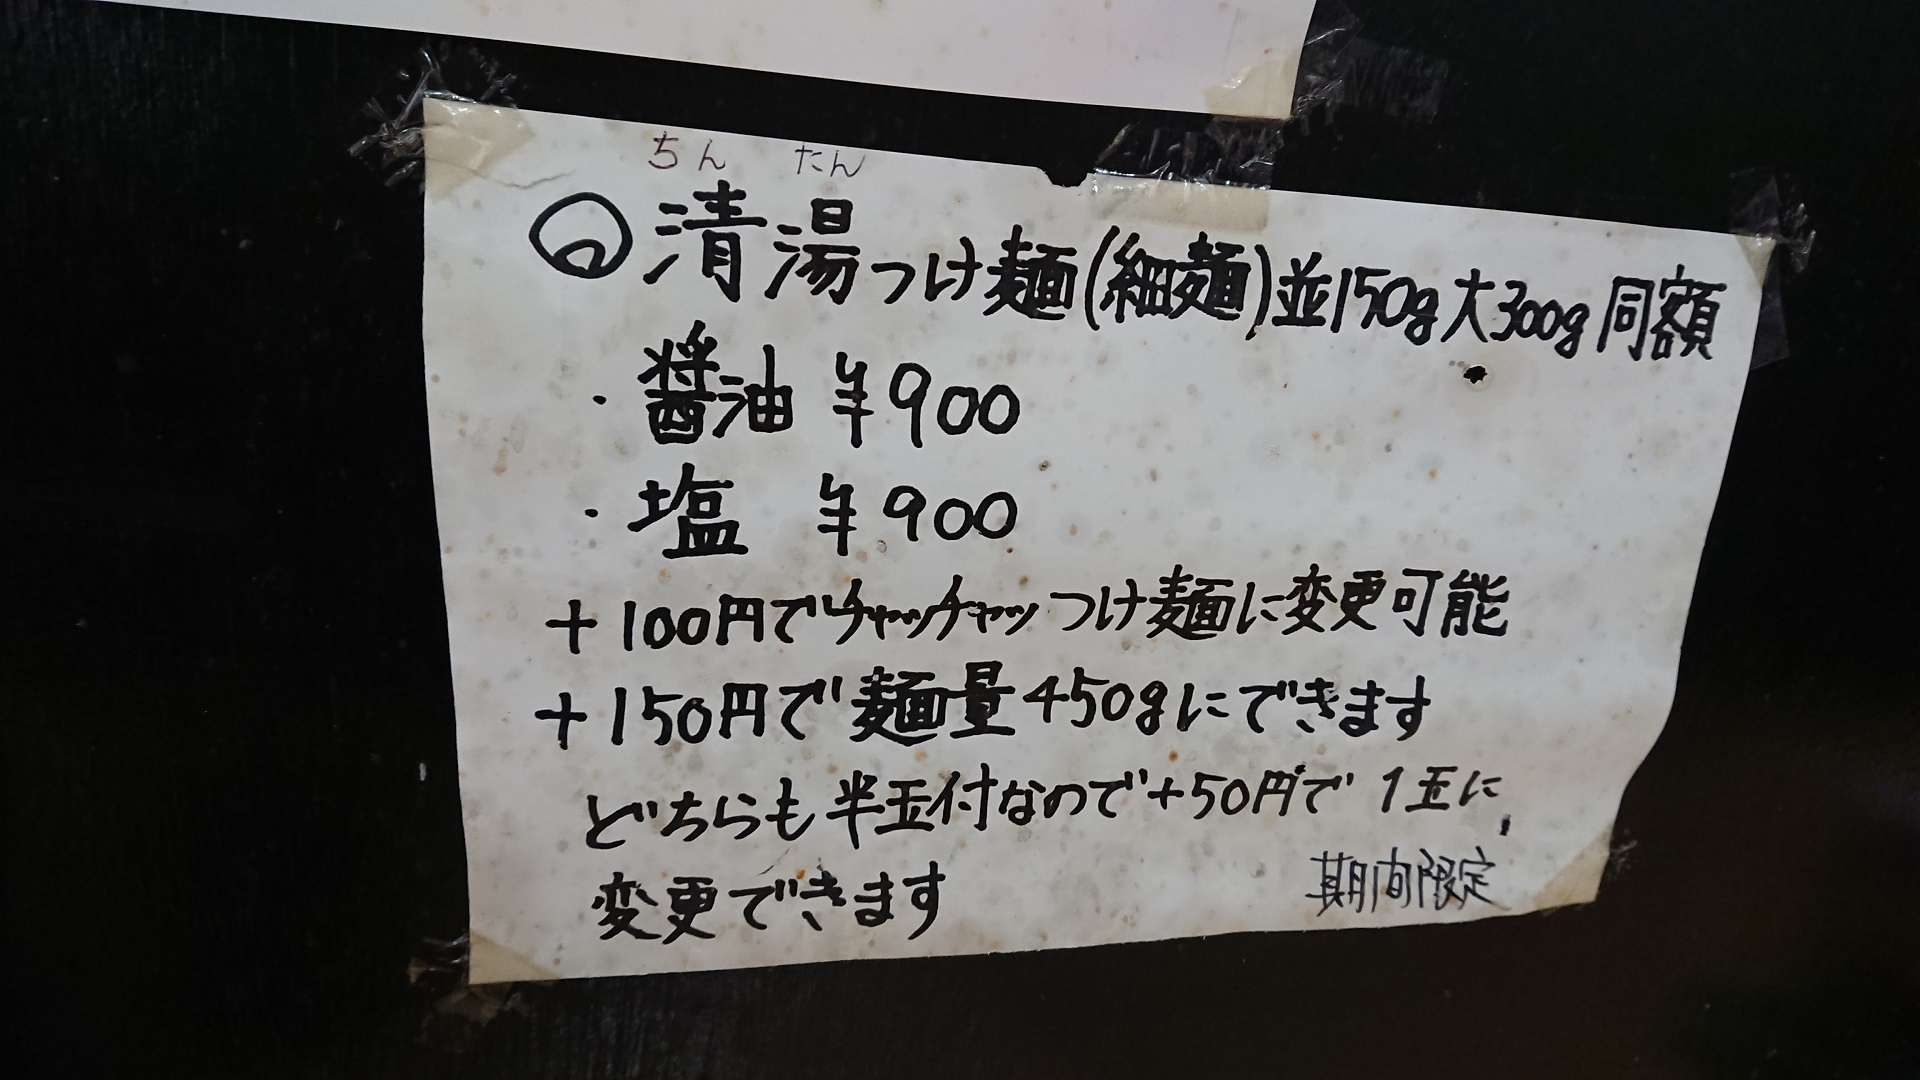 ちんたん
◎清湯つけ麺(細麺)並150g大300g同額
・醤油 ¥900
・塩 ¥900
+100円でチャッチャッつけ麺に変更可能
+150円で麺量450gにできます
どちらも半玉付なので+50円で1玉に
変更できます
期間限定